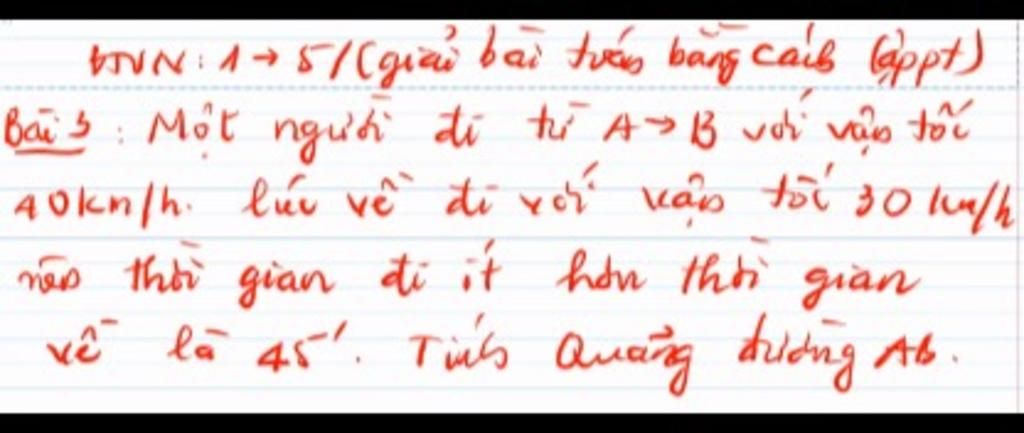 BTVN: 1 → 5/(giải bài toán bằng cách lập pt)
Bài 3: Một người đi từ A→B với vận tốc
40km/h. lúc về đi với vận tốc 30 km/h
nên thời gian đi ít hơn thời gian
về là 45'. Tính Quãng đường AB.